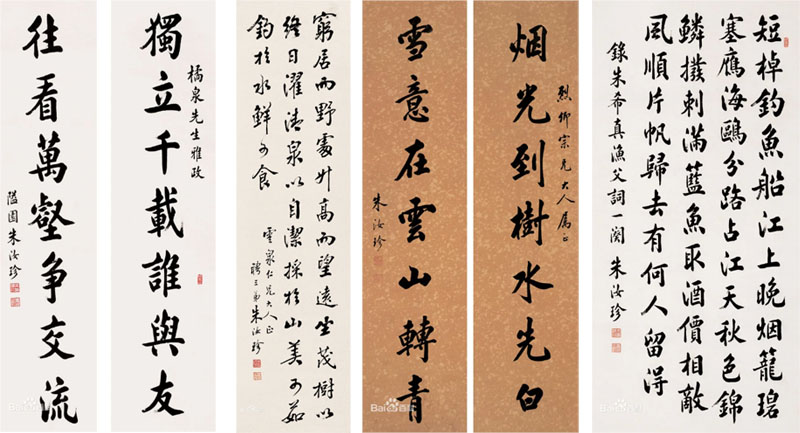 短棹釣魚船江上晚烟籠碧
塞鴈海鷗分路占江天秋色錦
鱗撥刺滿藍魚取酒價相敵
風順片帆歸去有何人留得
錄朱希真漁父詞一闋 朱汝珍
烈卿宗兄大人屬正
烟光到樹水先白
雪意在雲山轉青
朱汝珍
窮居而野處升高而望遠坐茂樹以
終日濯清泉以自潔採於山美可茹
釣於水鮮可食
雲泉仁兄大人正
聘三弟朱汝珍
橘泉先生雅政
獨立千載誰與友
往看萬壑争交流
隘園朱汝珍
Bai百科
Bai百科
Bai百科